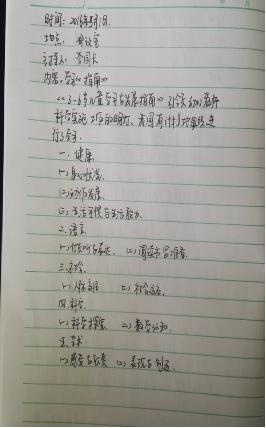 时间：2016年3月1日.
地点：会议室
主持人：李国卡
内容：学习《指南》
《3-6岁儿童学习与发展指南》引领幼儿教师
科学实施 工作的明灯，我园再计划 进
行了学习.
一、健康
(一)身心状况.
(二)动作发展.
(三)生活习惯与生活能力.
二、语言
(一)倾听与表达. (二)阅读书写准备.
三、社会.
(一)人际交往 (二)社会适应.
四.科学.
(一)科学探究 (二)数学认知.
五、艺术
(一)感受与欣赏 (二)表现与创造.